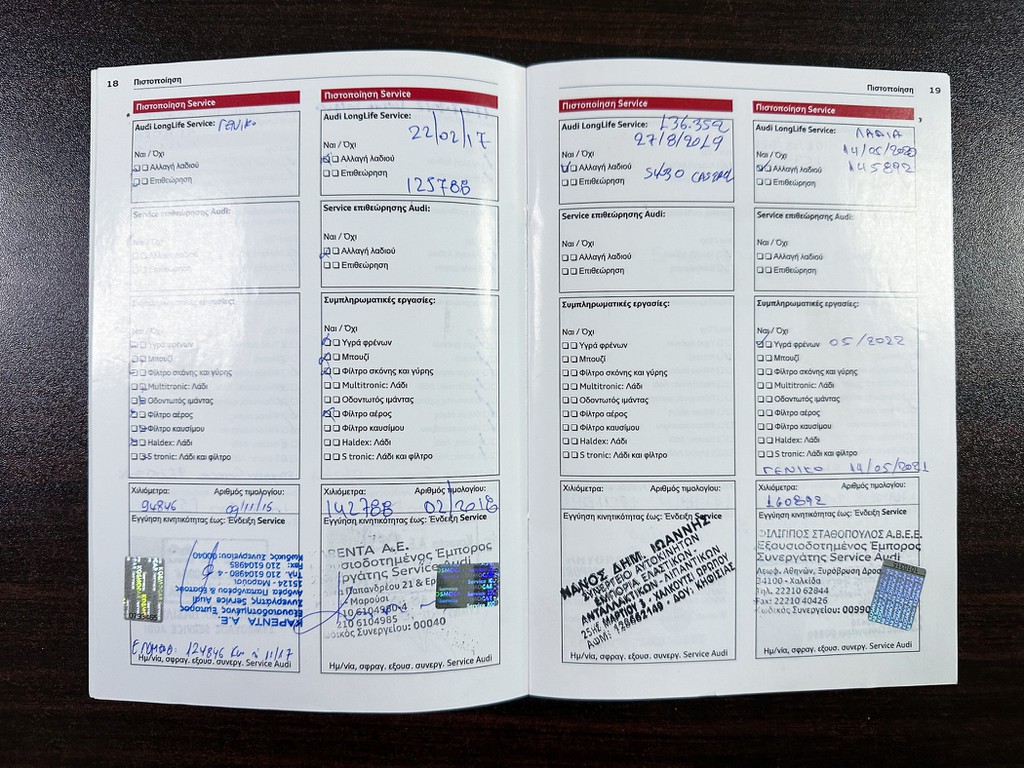 18 Πιστοποίηση
Πιστοποίηση Service
Audi LongLife Service: ΓΕΝΙΚΟ
Ναι / Όχι
Αλλαγή λαδιού
Επιθεώρηση
Service επιθεώρησης Audi:
Ναι / Όχι
Αλλαγή λαδιού
Επιθεώρηση
Συμπληρωματικές εργασίες:
Ναι / Όχι
Υγρά φρένων
Μπουζί
Φίλτρο σκόνης και γύρης
Multitronic: Λάδι
Οδοντωτός ιμάντας
Φίλτρο αέρος
Φίλτρο καυσίμου
Haldex: Λάδι
S tronic: Λάδι και φίλτρο
Χιλιόμετρα: Αριθμός τιμολογίου:
94846 09/11/15
Εγγύηση κινητικότητας έως: Ένδειξη Service
ΚΑΡΕΝΤΑ Α.Ε.
Εξουσιοδοτημένος Έμπορος
Συνεργάτης Service Audi
Ανδρέα Παπανδρέου 21 & Ερατούς
15124 - Μαρούσι
Τηλ. 210 6104980-4
Fax: 210 6104985
Κωδικός Συνεργείου: 00040
ΕΠΟΜΕΝΟ: 124846 Km ή 11/17
Ημ/νία, σφραγ. εξουσ. συνεργ. Service Audi
Πιστοποίηση Service
Audi LongLife Service:
22/02/17
Ναι / Όχι
Αλλαγή λαδιού
Επιθεώρηση
125788
Service επιθεώρησης Audi:
Ναι / Όχι
Αλλαγή λαδιού
Επιθεώρηση
Συμπληρωματικές εργασίες:
Ναι / Όχι
Υγρά φρένων
Μπουζί
Φίλτρο σκόνης και γύρης
Multitronic: Λάδι
Οδοντωτός ιμάντας
Φίλτρο αέρος
Φίλτρο καυσίμου
Haldex: Λάδι
S tronic: Λάδι και φίλτρο
Χιλιόμετρα: Αριθμός τιμολογίου:
142788 02/2018
Εγγύηση κινητικότητας έως: Ένδειξη Service
ΡΕΝΤΑ Α.Ε.
σιοδοτημένος Έμπορος
ργάτης Service Audi
Παπανδρέου 21 & Ερ
Μαρούσι
10 6104980-4
210 6104985
δικός Συνεργείου: 00040
Ημ/νία, σφραγ. εξουσ. συνεργ. Service Audi
Πιστοποίηση 19
Πιστοποίηση Service
Audi LongLife Service: 136.352
27/8/2019
Ναι / Όχι
Αλλαγή λαδιού
Επιθεώρηση
5W30 CASTROL
Service επιθεώρησης Audi:
Ναι / Όχι
Αλλαγή λαδιού
Επιθεώρηση
Συμπληρωματικές εργασίες:
Ναι / Όχι
Υγρά φρένων
Μπουζί
Φίλτρο σκόνης και γύρης
Multitronic: Λάδι
Οδοντωτός ιμάντας
Φίλτρο αέρος
Φίλτρο καυσίμου
Haldex: Λάδι
S tronic: Λάδι και φίλτρο
Χιλιόμετρα: Αριθμός τιμολογίου:
Εγγύηση κινητικότητας έως: Ένδειξη Service
ΜΑΝΟΣ ΔΗΜ. ΙΩΑΝΝΗΣ
ΣΥΝΕΡΓΕΙΟ ΑΥΤΟΚΙΝΗΤΩΝ
ΕΜΠΟΡΙΑ ΕΛΑΣΤΙΚΩΝ -
ΑΝΤΑΛΛΑΚΤΙΚΩΝ - ΛΙΠΑΝΤΙΚΩΝ
25ΗΣ ΜΑΡΤΙΟΥ 2 - ΧΑΛΚΟΥΤΣΙ ΩΡΩΠΟΥ
ΑΦΜ: 128662149 - ΔΟΥ: ΚΗΦΙΣΙΑΣ
Ημ/νία, σφραγ. εξουσ. συνεργ. Service Audi
Πιστοποίηση Service
Audi LongLife Service: ΛΑΔΙΑ
14/05/2020
Ναι / Όχι
Αλλαγή λαδιού 145892
Επιθεώρηση
Service επιθεώρησης Audi:
Ναι / Όχι
Αλλαγή λαδιού
Επιθεώρηση
Συμπληρωματικές εργασίες:
Ναι / Όχι
Υγρά φρένων 05/2022
Μπουζί
Φίλτρο σκόνης και γύρης
Multitronic: Λάδι
Οδοντωτός ιμάντας
Φίλτρο αέρος
Φίλτρο καυσίμου
Haldex: Λάδι
S tronic: Λάδι και φίλτρο
ΓΕΝΙΚΟ 14/05/2021
Χιλιόμετρα: Αριθμός τιμολογίου:
160892
Εγγύηση κινητικότητας έως: Ένδειξη Service
ΦΙΛΙΠΠΟΣ ΣΤΑΘΟΠΟΥΛΟΣ Α.Β.Ε.Ε.
Εξουσιοδοτημένος Έμπορος
Συνεργάτης Service Audi
Λεωφ. Αθηνών, Ξυρόβρυση Δροσ
34100 - Χαλκίδα
Τηλ. 22210 62844
Fax: 22210 40426
Κωδικός Συνεργείου: 0099
Ημ/νία, σφραγ. εξουσ. συνεργ. Service Audi